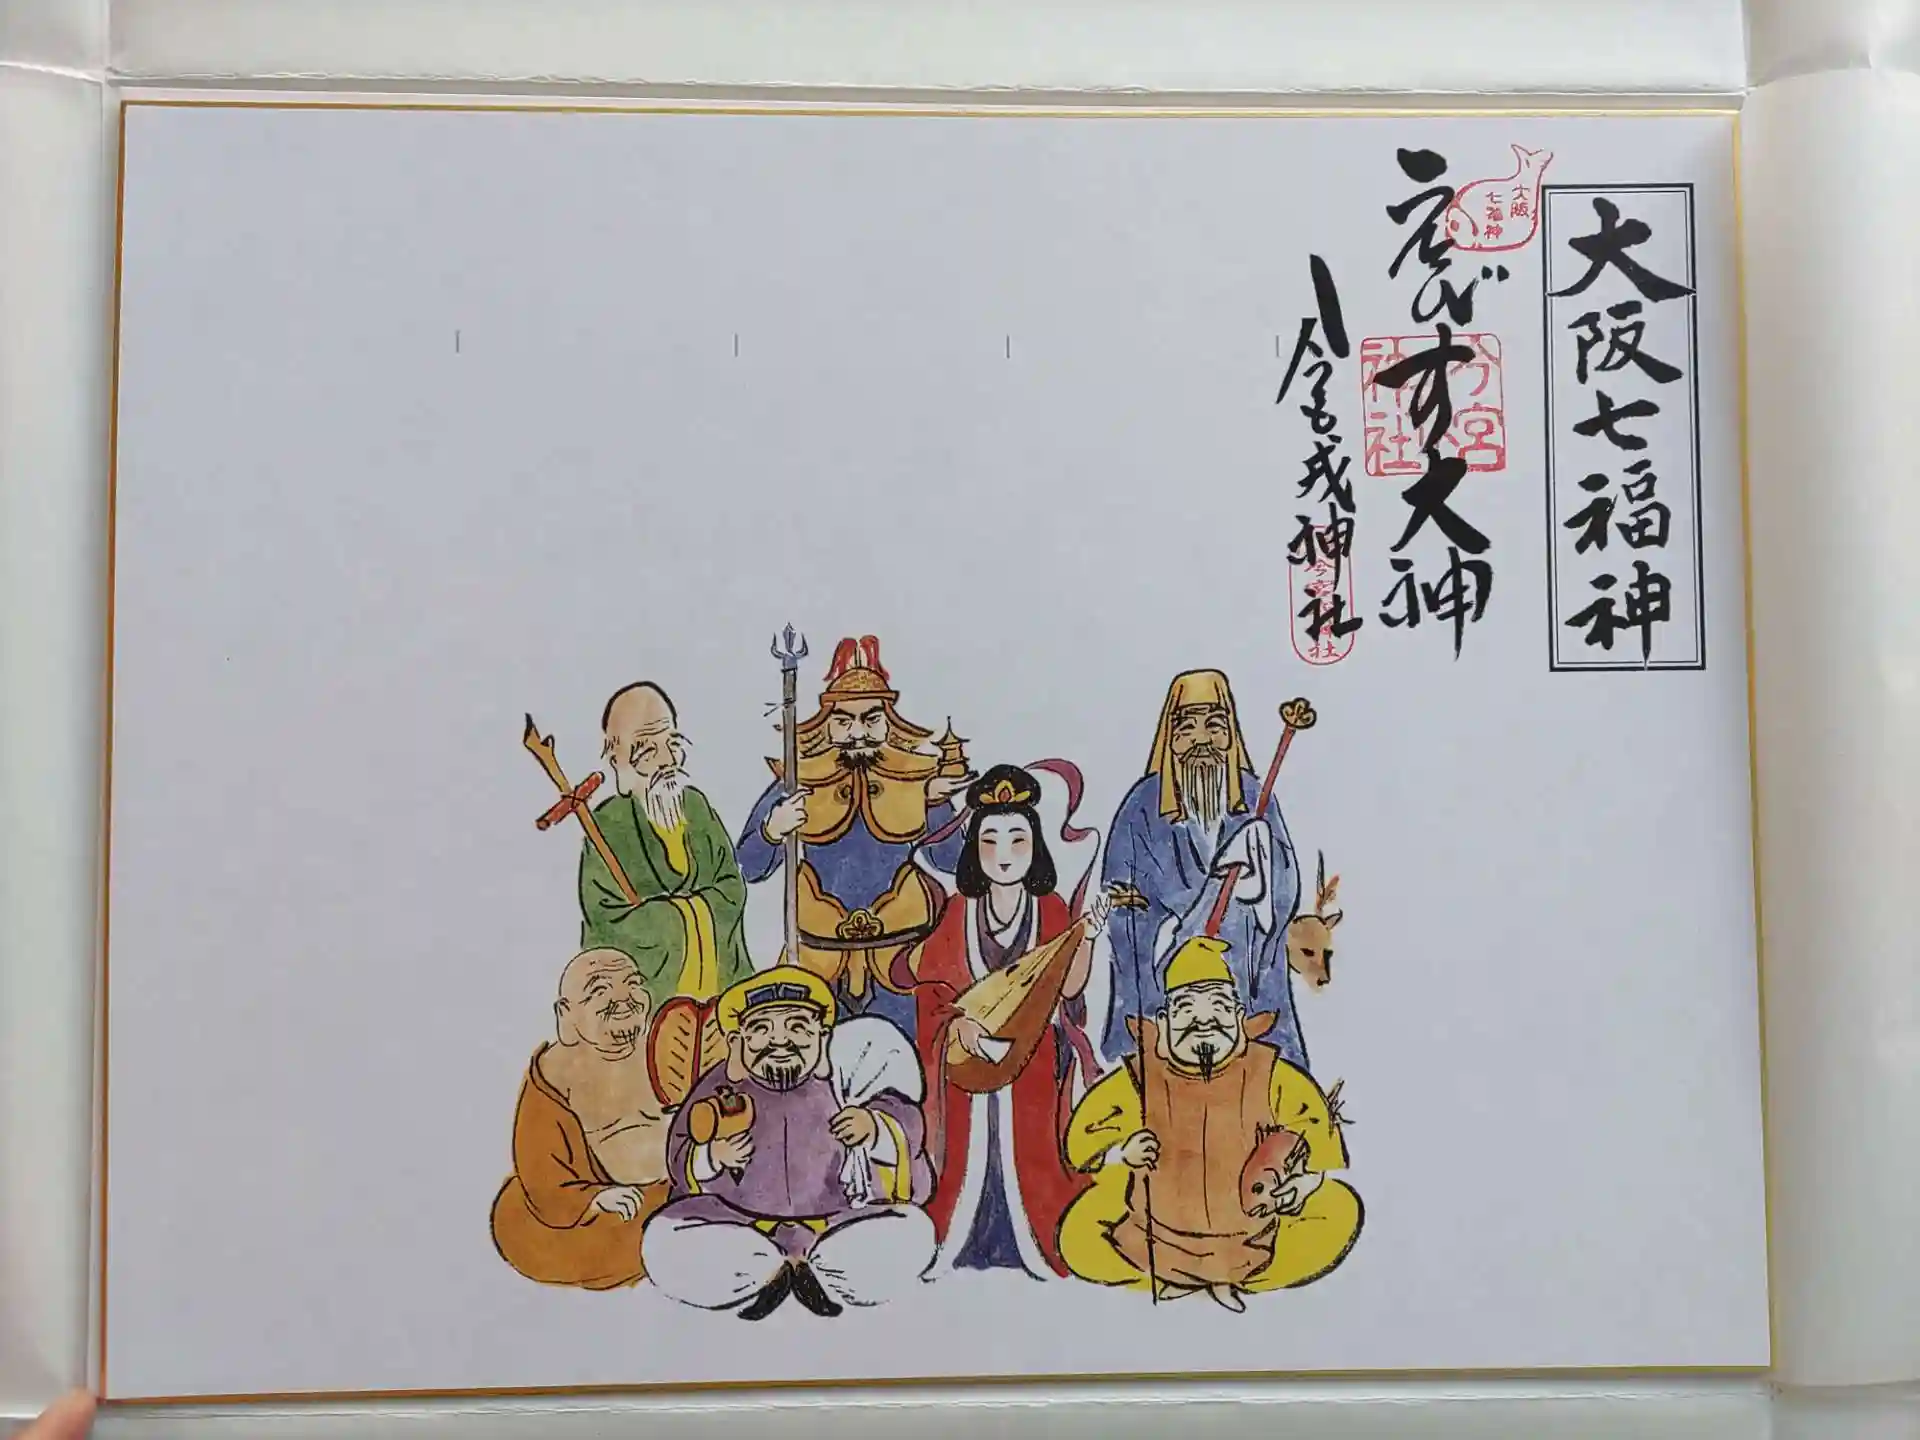 大阪七福神
大阪
七福神
ゑびす大神
今宮
神社
今宮戎神社